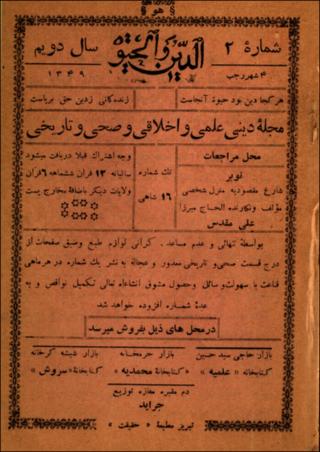 هو
شمارهٔ ۲
الدین والحیوة
سال دویم
۴ شهر رجب
۱۳۴۹
هر کجا دین بود حیوة آنجاست
زنده کانی زدین حق برپاست
مجلهٔ دینی علمی و اخلاقی و صحی و تاریخی
محل مراجعات
نوبر
شارع مقصودیه منزل شخصی
مؤلف ونگارنده الحاج میرزا
علی مقدس
تك شماره
۱۶ شاهی
وجه اشتراك قبلا دریافت میشود
سالیانه ۱۳ قران ششماهه ۷ قران
ولایات دیگر باضافهٔ مخارج پست
بواسطهٔ تنهائی و عدم مساعد . گرانی لوازم طبع وضیق صفحات از
درج قسمت صحی و تاریخی معذور و عجالة به نشر یك شماره در هر ماهی
قناعت با سهولت وسائل وحصول مشوق انشاءاله تعالی تکمیل نواقص و به
عدهٔ شماره افزوده خواهد شد
در محل های ذیل بفروش میرسد
بازار حاجی سید حسین
کتابخانه « علمیه »
بازار حرمخانه
« کتابخانهٔ محمدیه »
بازار شیشه گرخانه
« کتابخانهٔ سروش »
دم مقبره مغازه توزیع
جراید
تبریز مطبعهٔ « حقیقت »